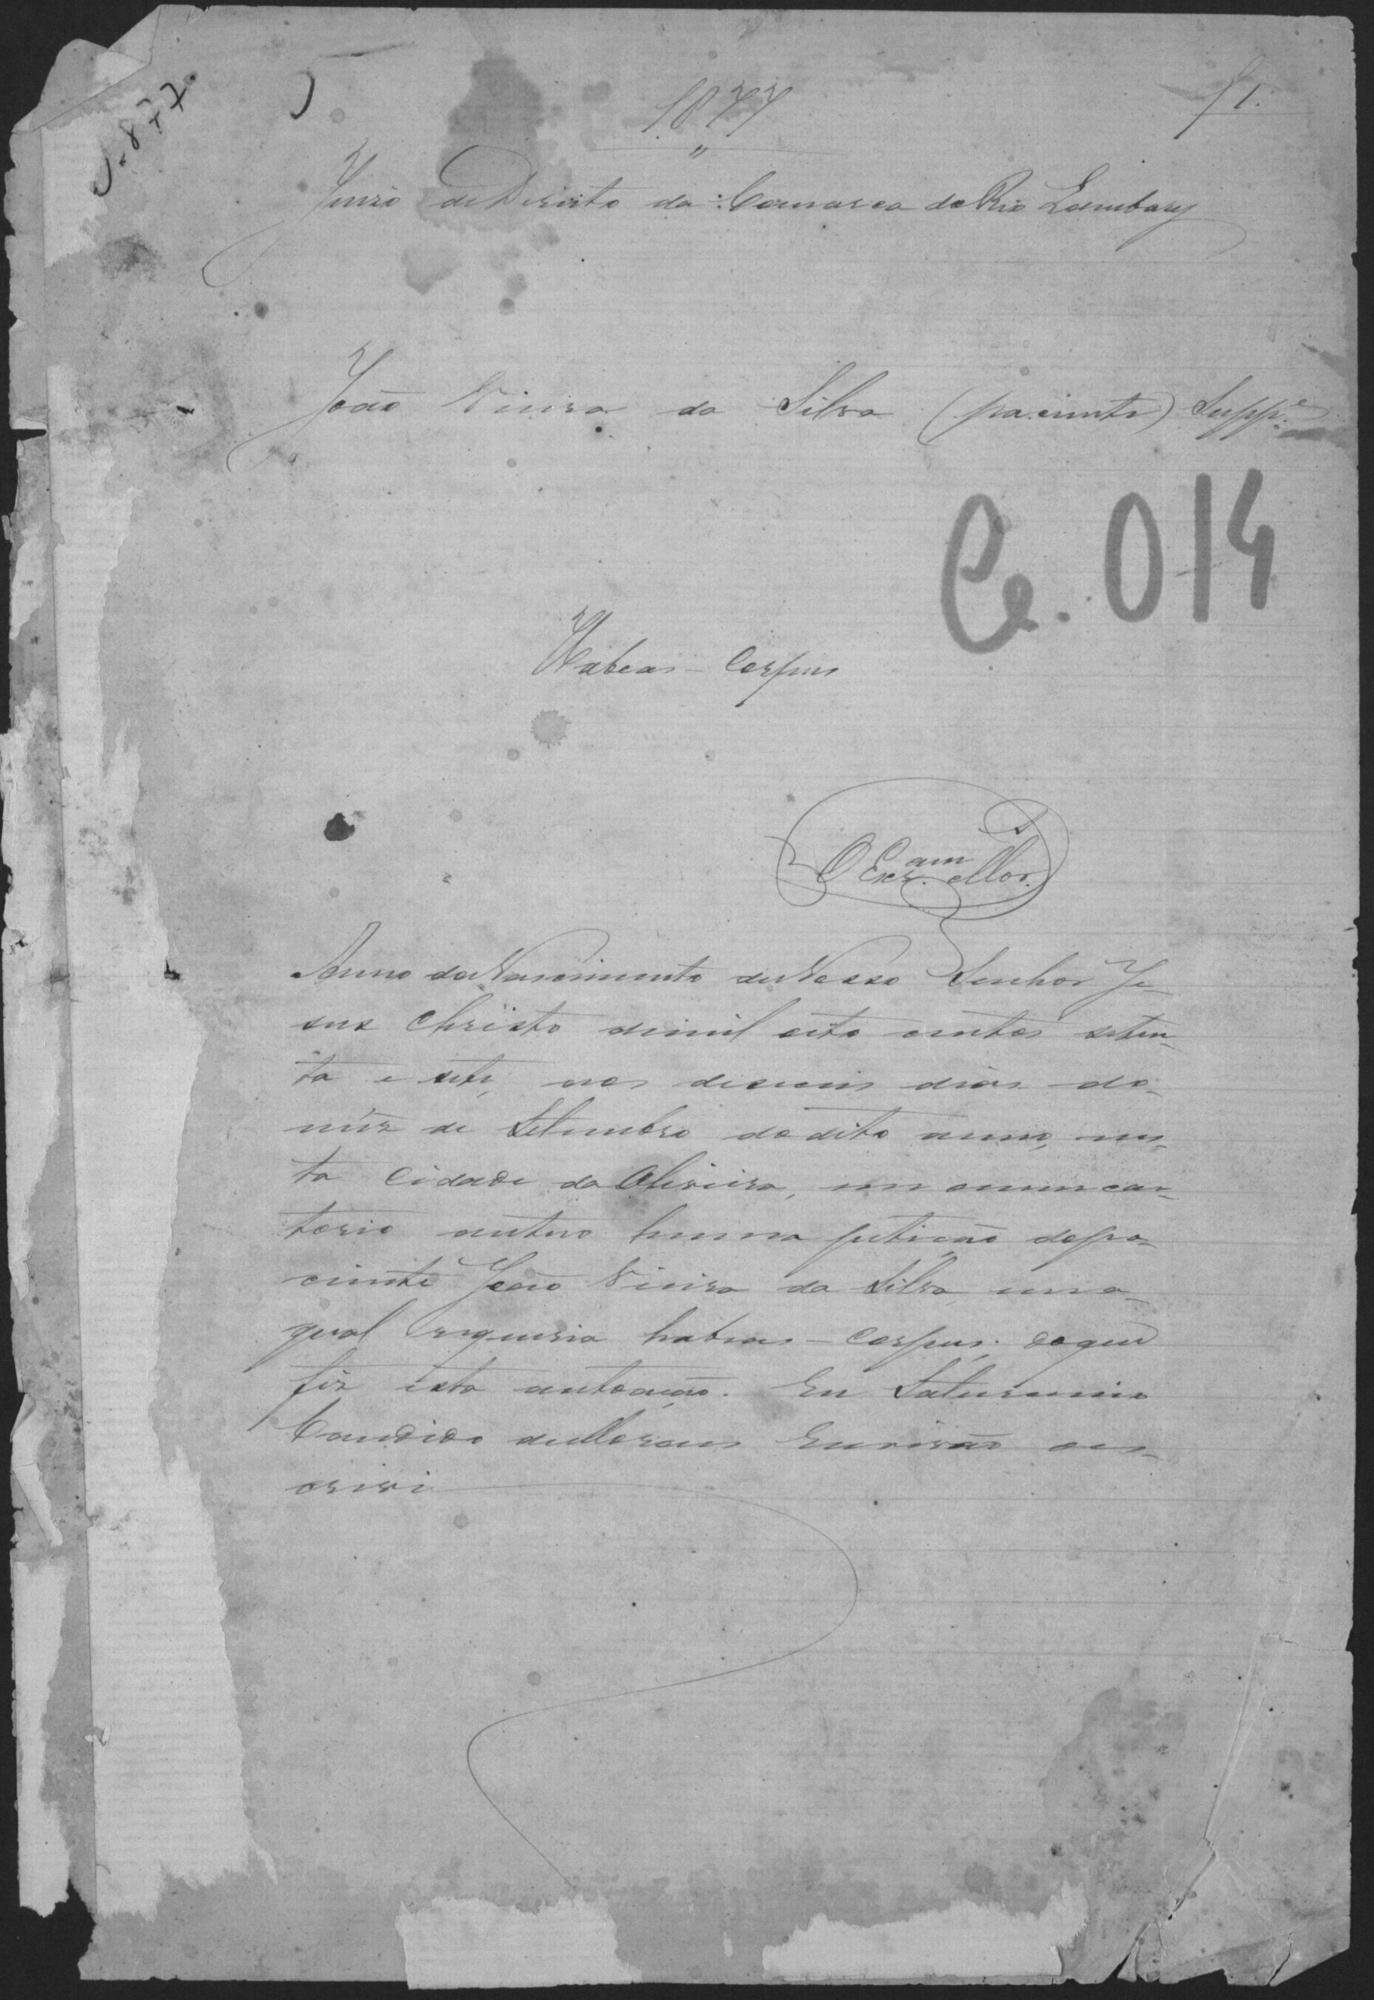 1877
f 1.
1877
Juizo de Direito da Comarca do Rio Lambary
João Vieira da Silva (paciente) Supp.e
Ce. 014
Habeas-Corpus
O Escr.am Mor.
Anno do Nascimento de Nosso Senhor Je-
sus Christo de mil oito centos seten-
ta e sete, aos deseseis dias do
mez de Setembro do dito anno, nes-
ta Cidade da Oliveira, em o meu car-
torio autuo huma petição do pa-
ciente João Vieira da Silva, em a
qual requeria habeas-corpus; do que
fiz esta autoação. Eu Saturnino
Candido de Moraes Escrivão o es-
crivi